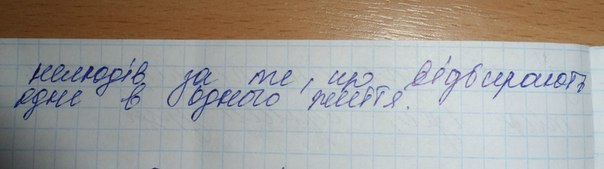 нелюдів за те, що відбирають
одне в одного життя.